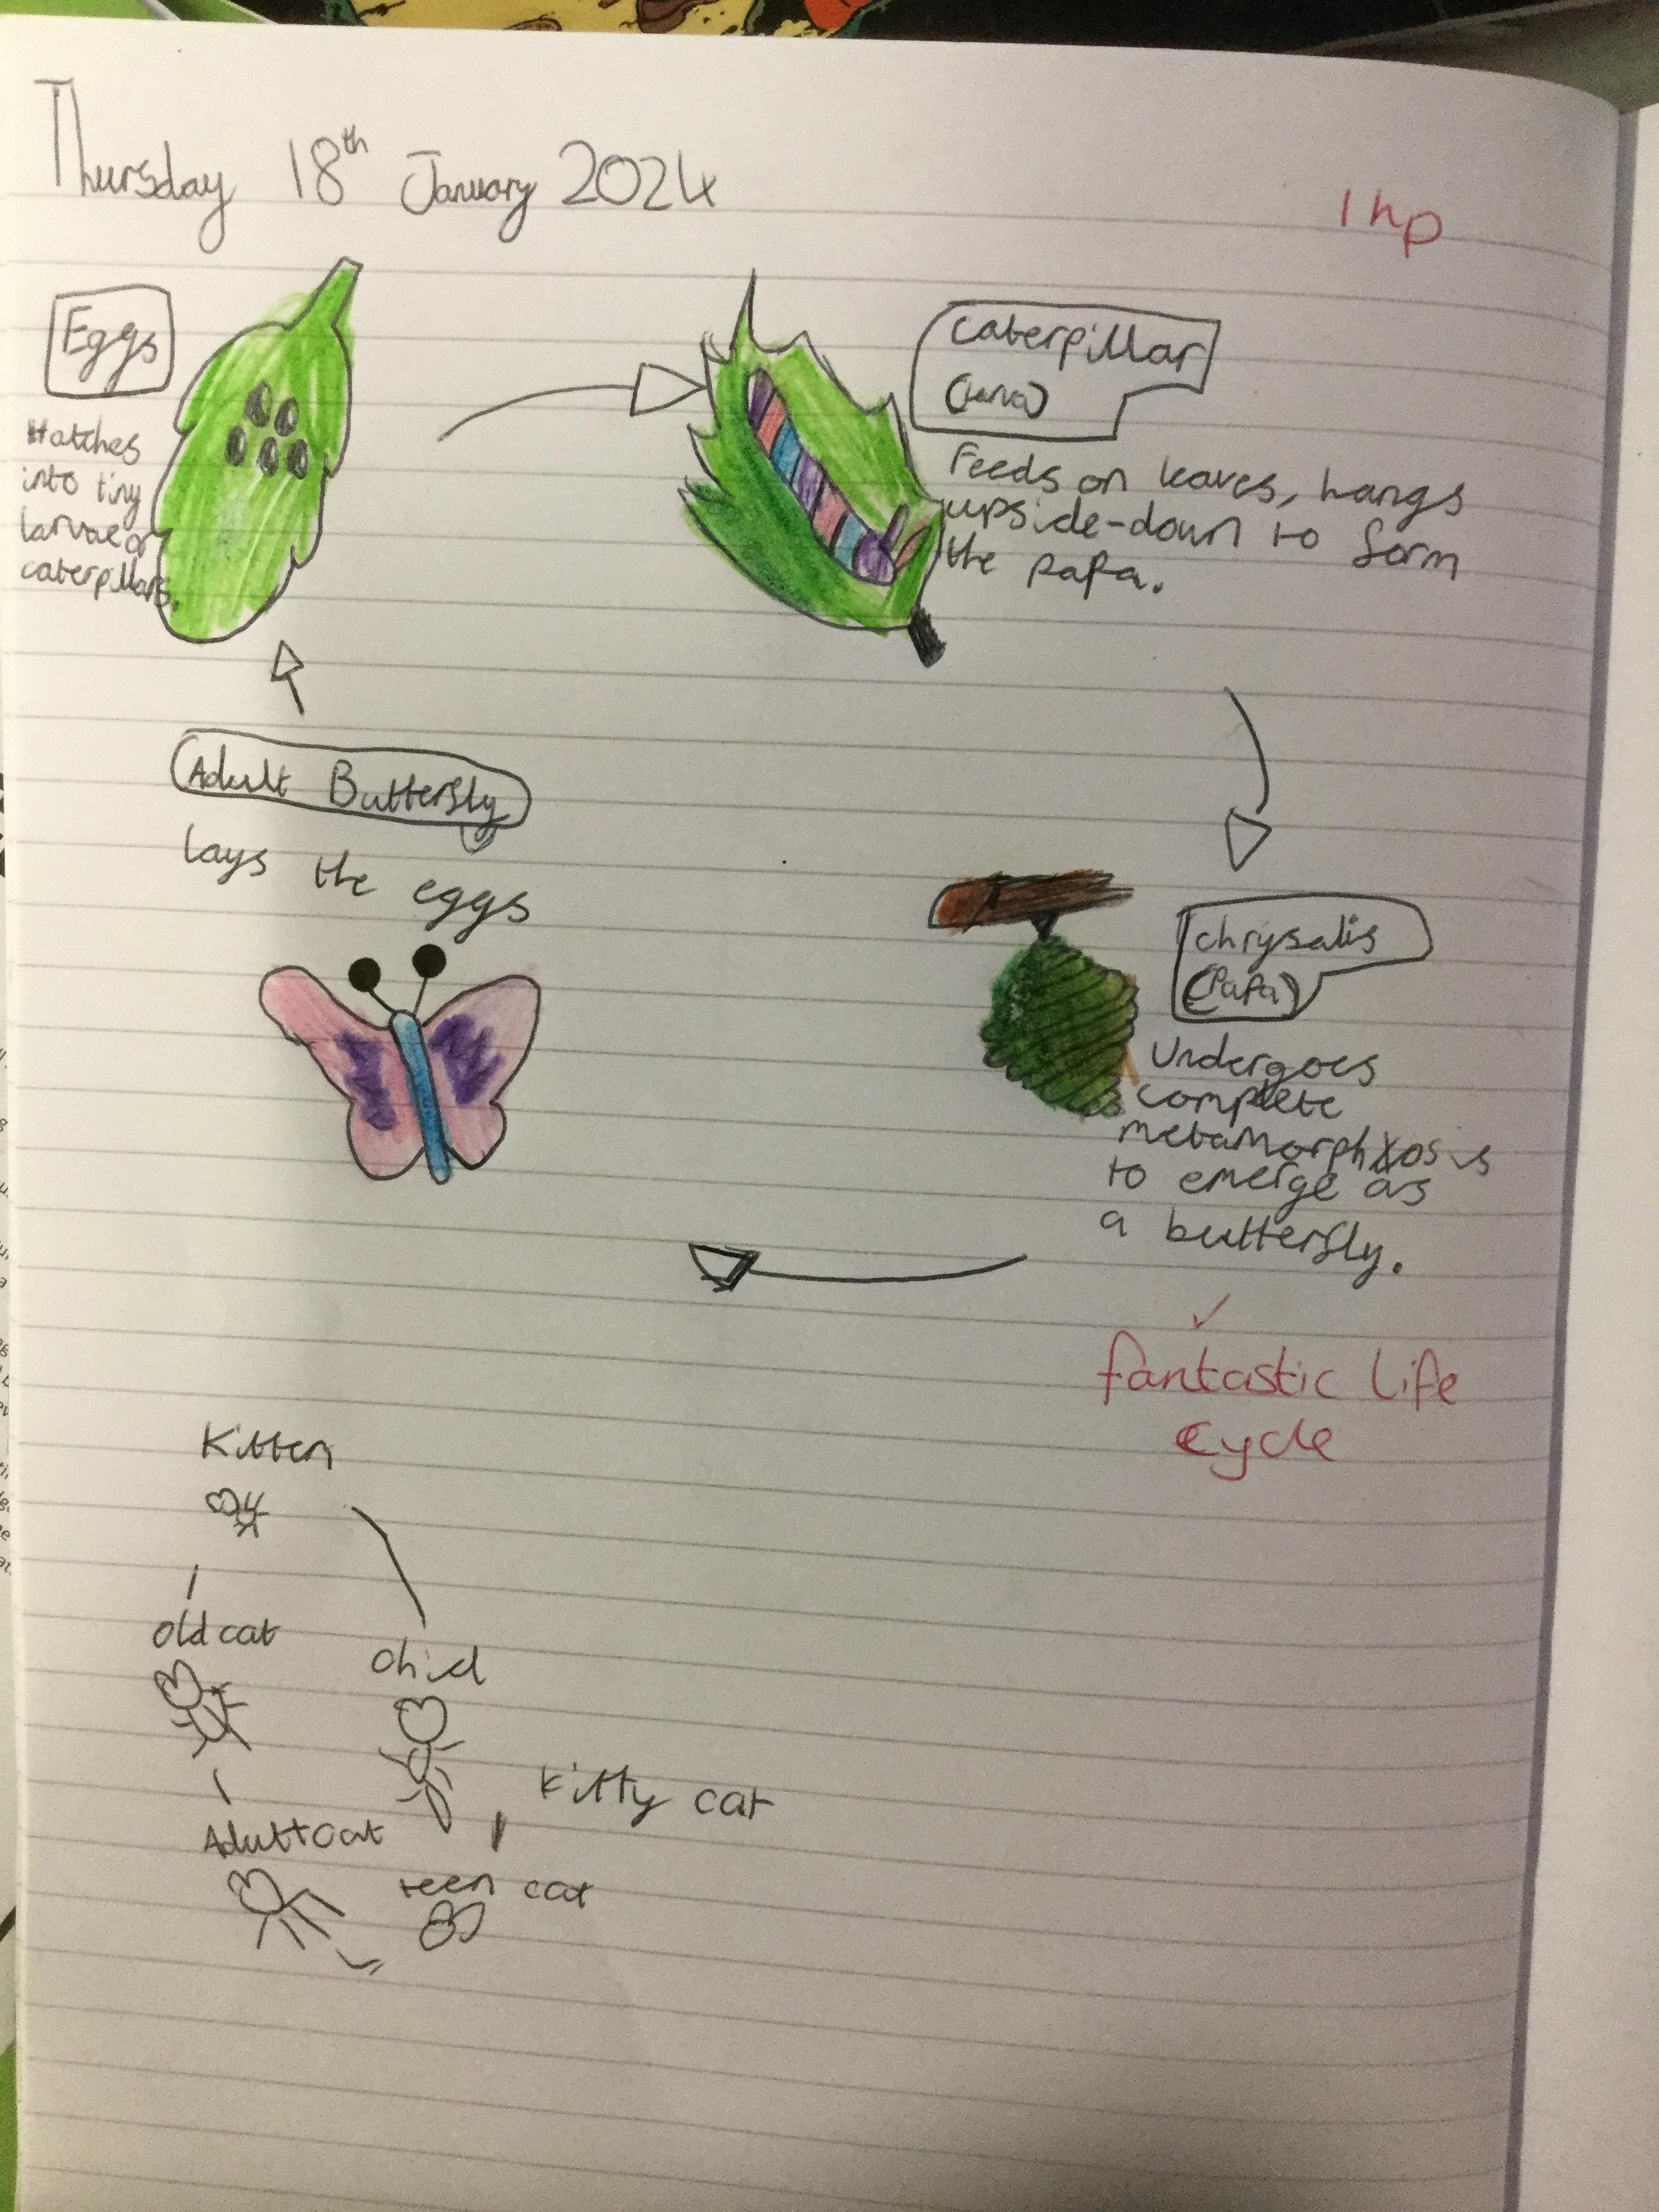 Thursday 18th January 2024
1 hp
Eggs
Hatches
into tiny
larvae or
caterpillars.
caterpillar
(larva)
Feeds on leaves, hangs
upside-down to form
the papa.
Adult Butterfly
lays the eggs
chrysalis
(Papa)
Undergoes
complete
metamorphosis
to emerge as
a butterfly.
fantastic life
cycle
Kitten
old cat
child
Kitty cat
Adult cat
teen cat